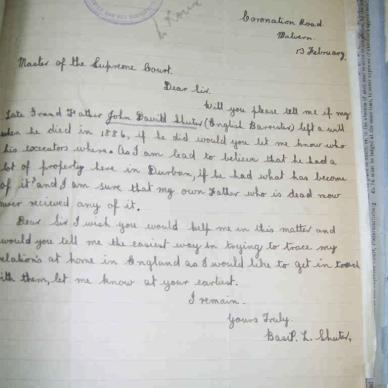 Coronation Road
Malvern.
13 February
Master of the Supreme Court.
Dear Sir.
Will you please tell me if my
Late Grand Father John David Shuter (English Barrister) left a will
when he died in 1886, if he did would you let me know who
his executors where. As I am lead to believe that he had a
lot of property here in Durban, if he had what has become
of it? and I am sure that my own Father who is dead now
never recieved any of it.
Dear Sir I wish you would help me in this matter and
would you tell me the easiest way in trying to trace my
relations at home in England as I would like to get in touch
with them, let me know at your earliest.
I remain.
Yours Truly.
Basil. L. Shuter.